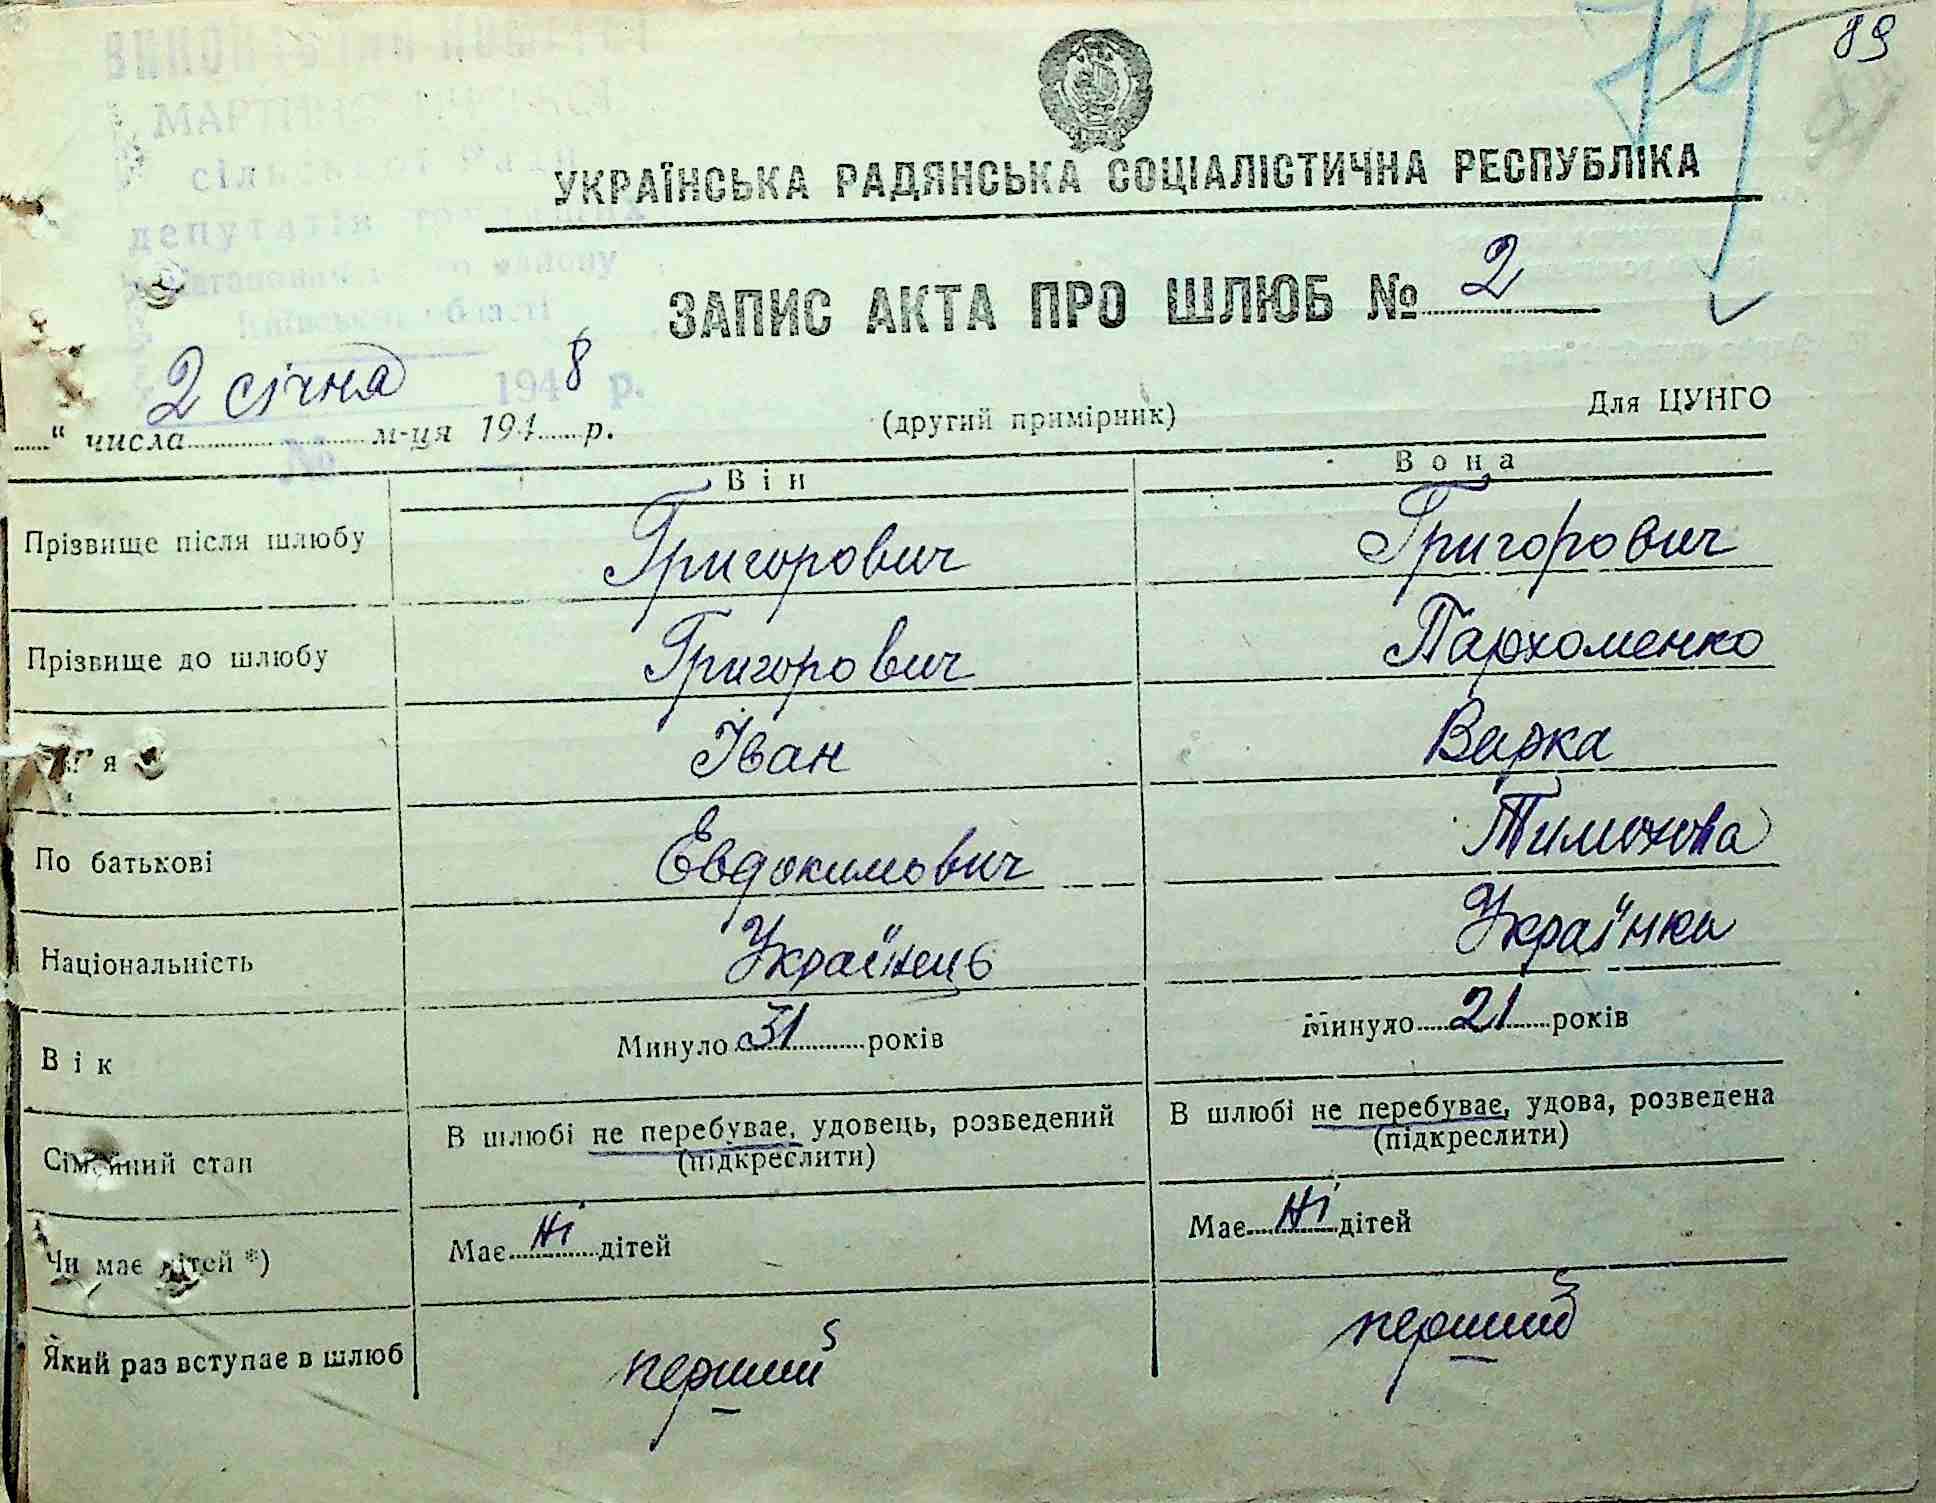 89
УКРАЇНСЬКА РАДЯНСЬКА СОЦІАЛІСТИЧНА РЕСПУБЛІКА
депутатів трудящих
Київської області
194 р.
№
ЗАПИС АКТА ПРО ШЛЮБ № 2
“ числа 2 січня м-ця 194 8 р.
(другий примірник)
Для ЦУНГО
Він Вона
Прізвище після шлюбу Григорович Григорович
Прізвище до шлюбу Григорович Пархоменко
м'я Іван Варка
По батькові Евдокимович Тимохова
Національність Українець Українка
Вік Минуло 31 років Минуло 21 років
Сімейний стан В шлюбі не перебуває, удовець, розведений В шлюбі не перебуває, удова, розведена
(підкреслити) (підкреслити)
Чи має дітей *) Має Ні дітей Має Ні дітей
Який раз вступає в шлюб перший перший